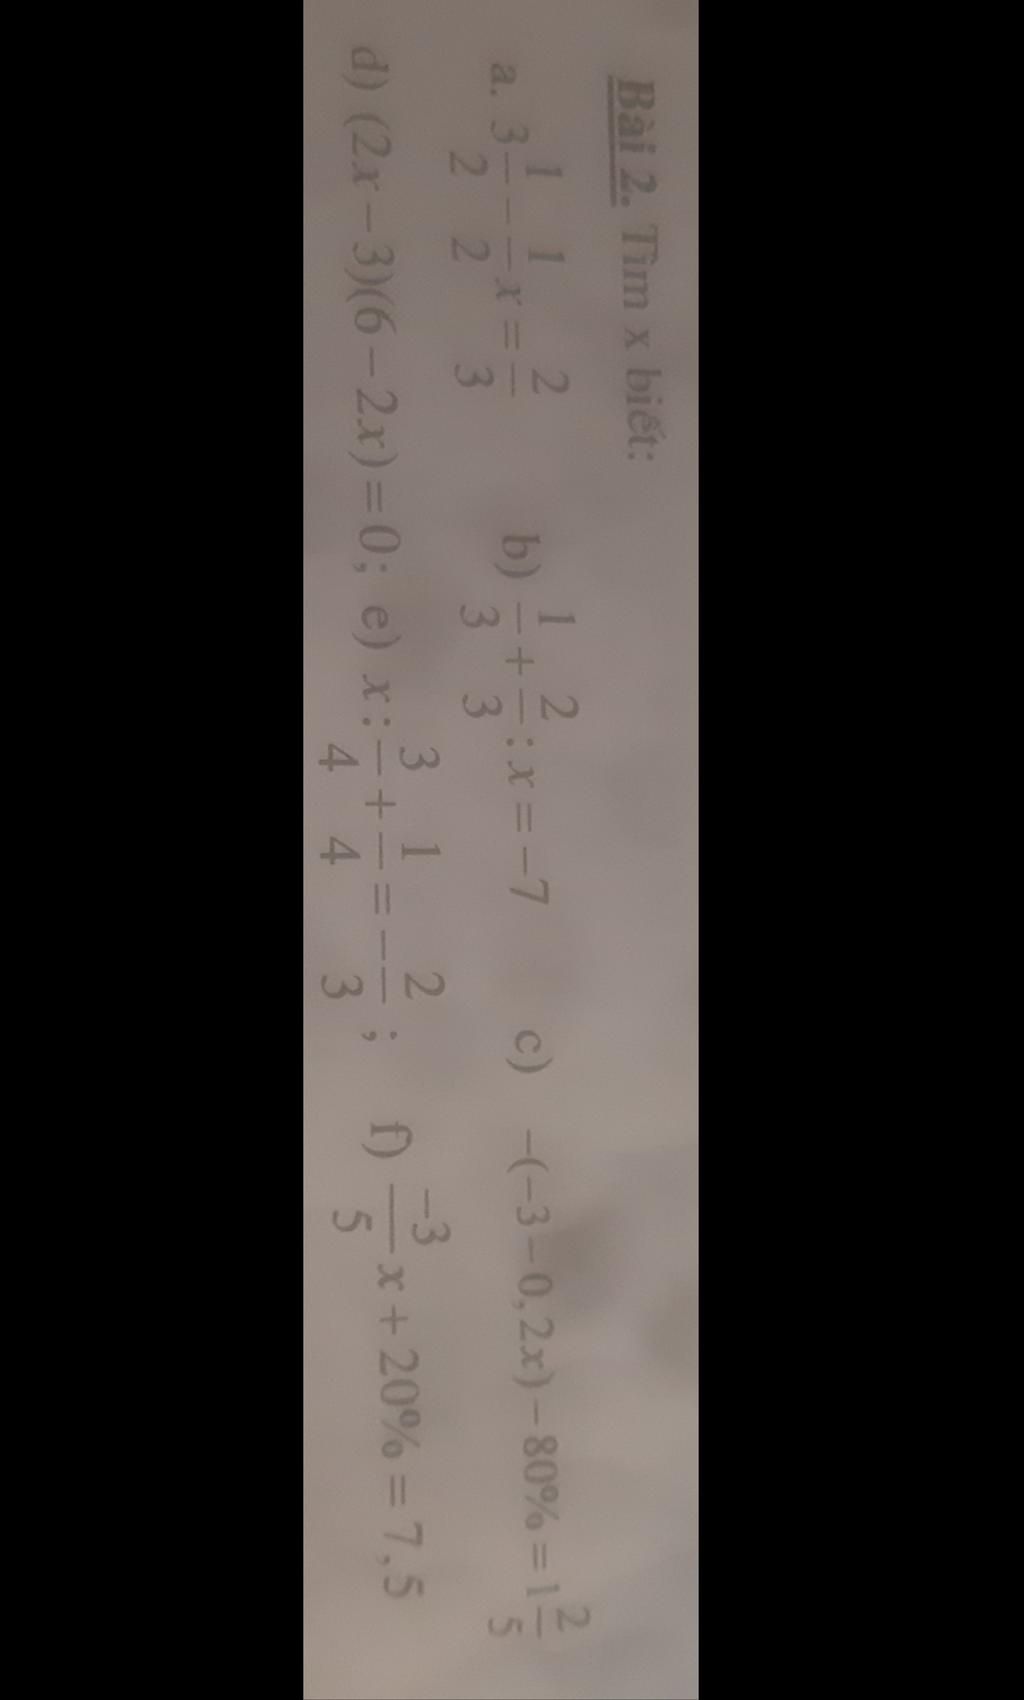 Bài 2. Tìm x biết:
a. 3\frac{1}{2} - \frac{1}{2}x = \frac{2}{3} b) \frac{1}{3} + \frac{2}{3} : x = -7 c) -(-3 - 0,2x) - 80% = 1\frac{2}{5}
d) (2x - 3)(6 - 2x) = 0; e) x : \frac{3}{4} + \frac{1}{4} = -\frac{2}{3}; f) \frac{-3}{5}x + 20% = 7,5